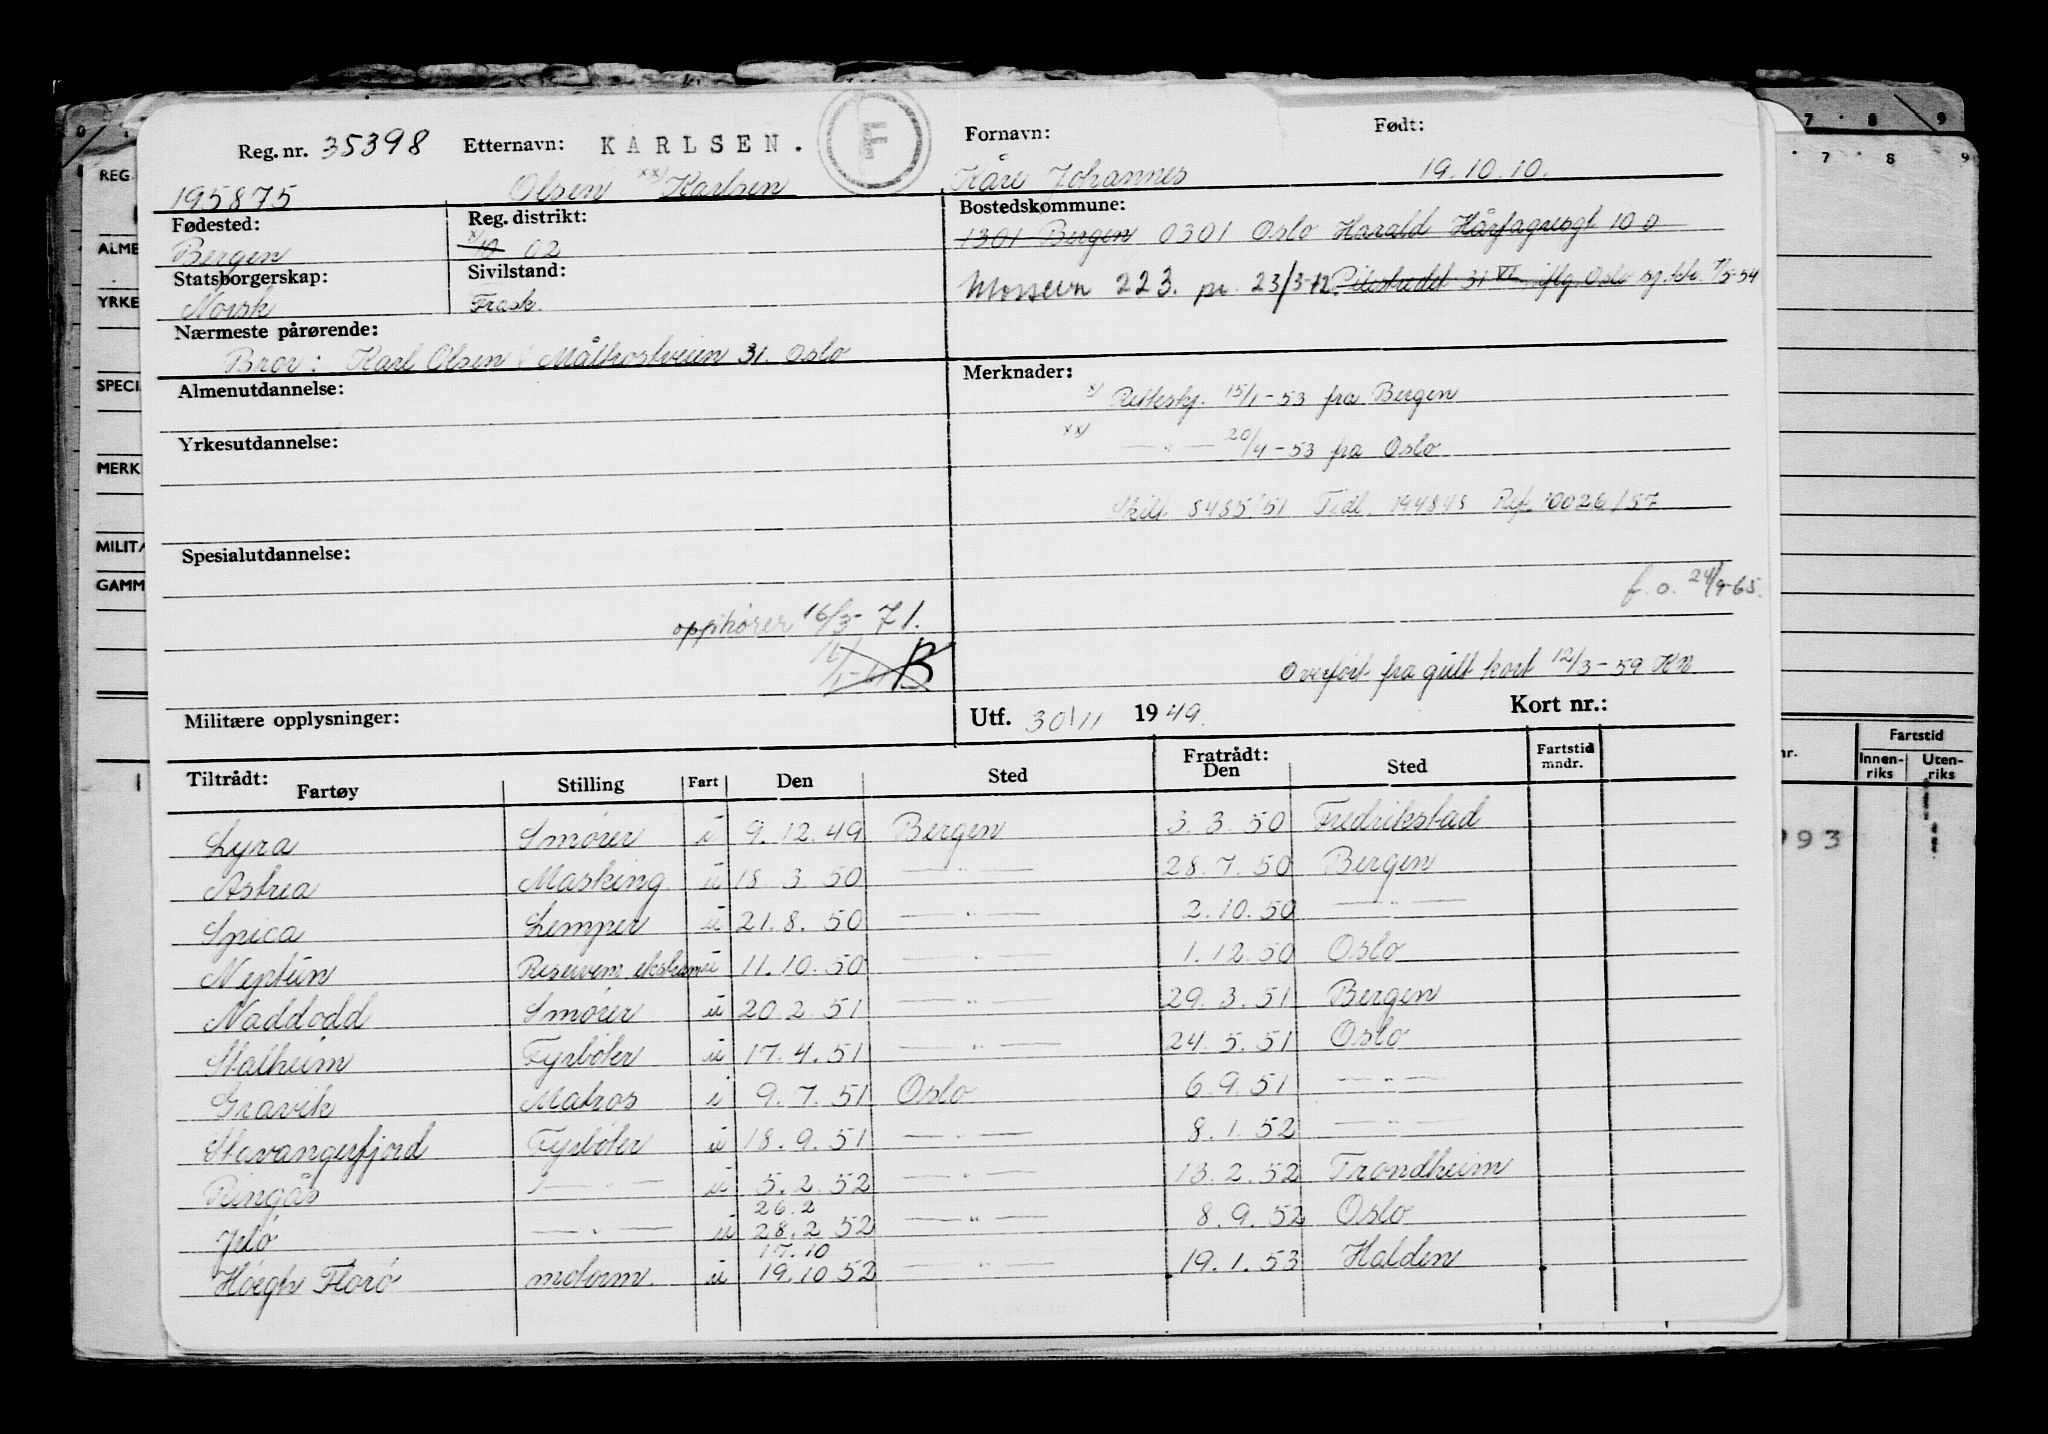 Reg. nr. 35398 Etternavn: KARLSEN. F Fornavn: Født:
195875 Olsen xx) Karlsen Kåre Johannes 19.10.10.
Fødested: Reg. distrikt: Bostedskommune:
Bergen x) 10 02 1301 Bergen 0301 Oslo Harald Hårfagresgt 10 0
Statsborgerskap: Sivilstand:
Norsk Frask. Mossevn 223. pr. 23/3-72. Pilestredet 31 VI iflg. Oslo sj.ktr. 7/5-54
Nærmeste pårørende:
Bror: Karl Olsen Måltrostveien 31. Oslo
Almenutdannelse: Merknader:
x) Retteskj. 15/1-53 fra Bergen
Yrkesutdannelse: xx) — " — 20/4-53 fra Oslo
Skill 8485/51 Tidl. 194848 Ref. 10026/57
Spesialutdannelse:
f.o. 24/9-65.
opphører 16/3-71.
B
Overført fra gult kort 12/3-59 KN
Militære opplysninger: Utf. 30/11 1949. Kort nr.:
Tiltrådt: Fratrådt: Fartstid
Fartøy Stilling Fart Den Sted Den Sted mndr.
Lyra Smører u 9.12.49 Bergen 3.3.50 Fredrikstad
Astrea Masking. u 18.3.50 — " — 28.7.50 Bergen
Spica Lemper u 21.8.50 — " — 2.10.50 — " —
Neptun Reservem. ekstram u 11.10.50 — " — 1.12.50 Oslo
Naddodd Smører u 20.2.51 — " — 29.3.51 Bergen
Stalheim Fyrbøter u 17.4.51 — " — 24.5.51 Oslo
Gravik Matros i 9.7.51 Oslo 6.9.51 — " —
Stavangerfjord Fyrbøter u 18.9.51 — " — 8.1.52 — " —
Ringås — " — u 5.2.52 — " — 13.2.52 Trondheim
26.2
Jelø — " — u 28.2.52 — " — 8.9.52 Oslo
17.10
Höegh Florø motorm. u 19.10.52 — " — 19.1.53 Halden
REG.
ALME
YRKE
SPECI
MERK
MILITÆ
GAMM
7 8 9
7 8 9
nr. Fartstid
Innen-riks Uten-riks
993